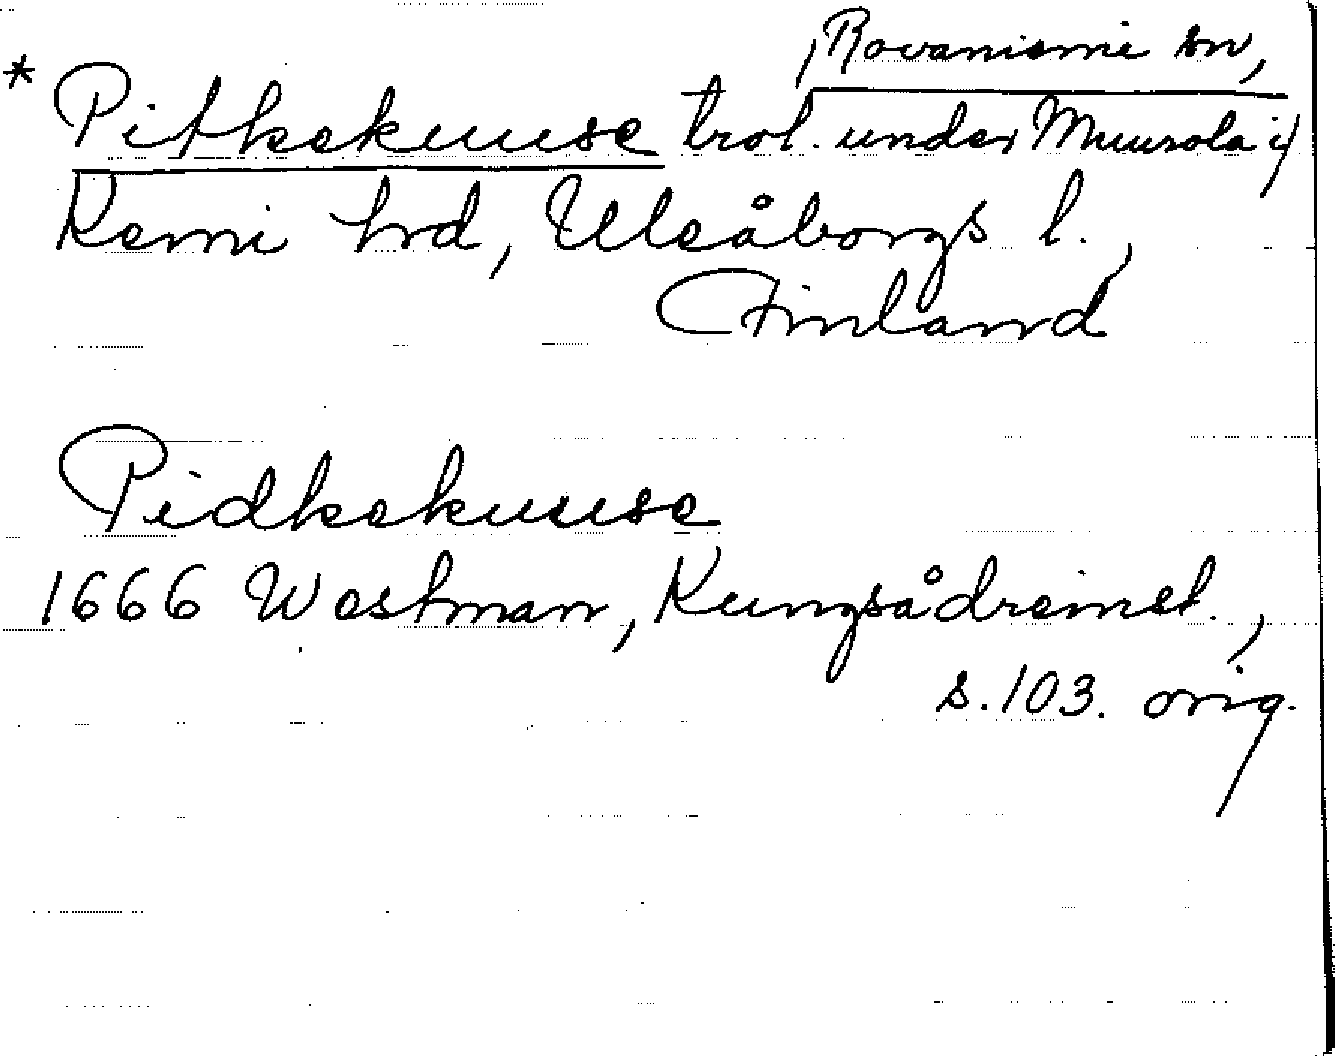 Rovaniemi sn,
* Pitkekuuse trol. under Muurola i
Kemi hrd, Uleåborgs l.,
Finland
Pidkekuuse
1666 Westman, Kungsådreinst.,
s. 103. orig.